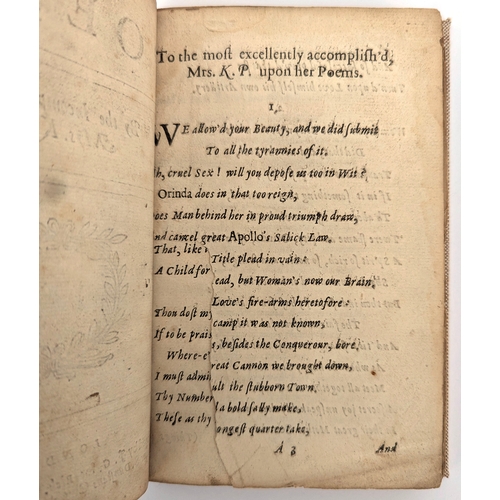 To the most excellently accomplish'd,
Mrs. K. P. upon her Poems.
1,
WE allow'd your Beauty, and we did submit
To all the tyrannies of it.
h, cruel Sex! will you depose us too in Wit?
Orinda does in that too reign,
oes Man behind her in proud triumph draw,
nd cancel great Apollo's Salick Law.
That, like
Title plead in vain:
A Child for
ead, but Woman's now our Brain.
Love's fire-arms heretofore:
Thou dost my
camp it was not known,
If to be prais
s, besides the Conquerour, bore.
Where-e
reat Cannon we brought down,
I must admi
ult the stubborn Town.
Thy Number
a bold sally make,
These as thy
ongest quarter take,
A 3 And